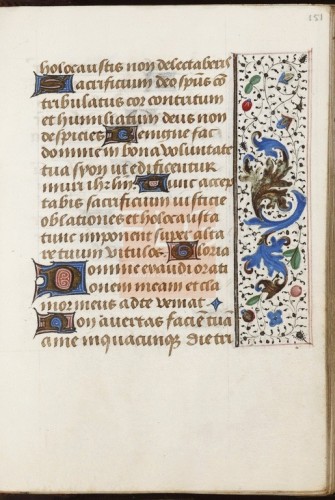 151
holocaustis non delectaberis
Sacrificium deo spūs co
tribulatus cor contritum
et humiliatum deus non
despicies Benigne fac
domine in bona voluntate
tua syon ut edificentur
muri ihrlm Tunc accep
tabis sacrificium iusticie
oblationes et holocausta
tunc imponent super alta
re tuum vitulos Gloria
Domine exaudi orati
onem meam et cla
mor meus ad te veniat
Non avertas faciē tuā
a me in quacunqꝫ die tri